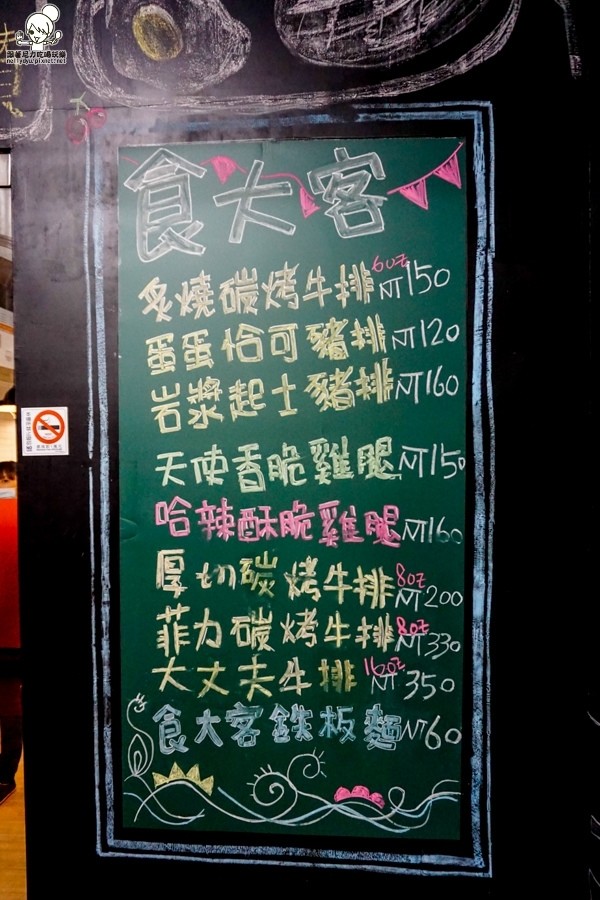 跟著尼力吃喝玩樂
nellydyu.pixnet.net
食大客
炙燒碳烤牛排 6oz NT150
蛋蛋恰可豬排 NT120
岩漿起士豬排 NT160
天使香脆雞腿 NT150
哈辣酥脆雞腿 NT160
厚切碳烤牛排 8oz NT200
菲力碳烤牛排 8oz NT330
大丈夫牛排 16oz NT350
食大客鉄板麵 NT60